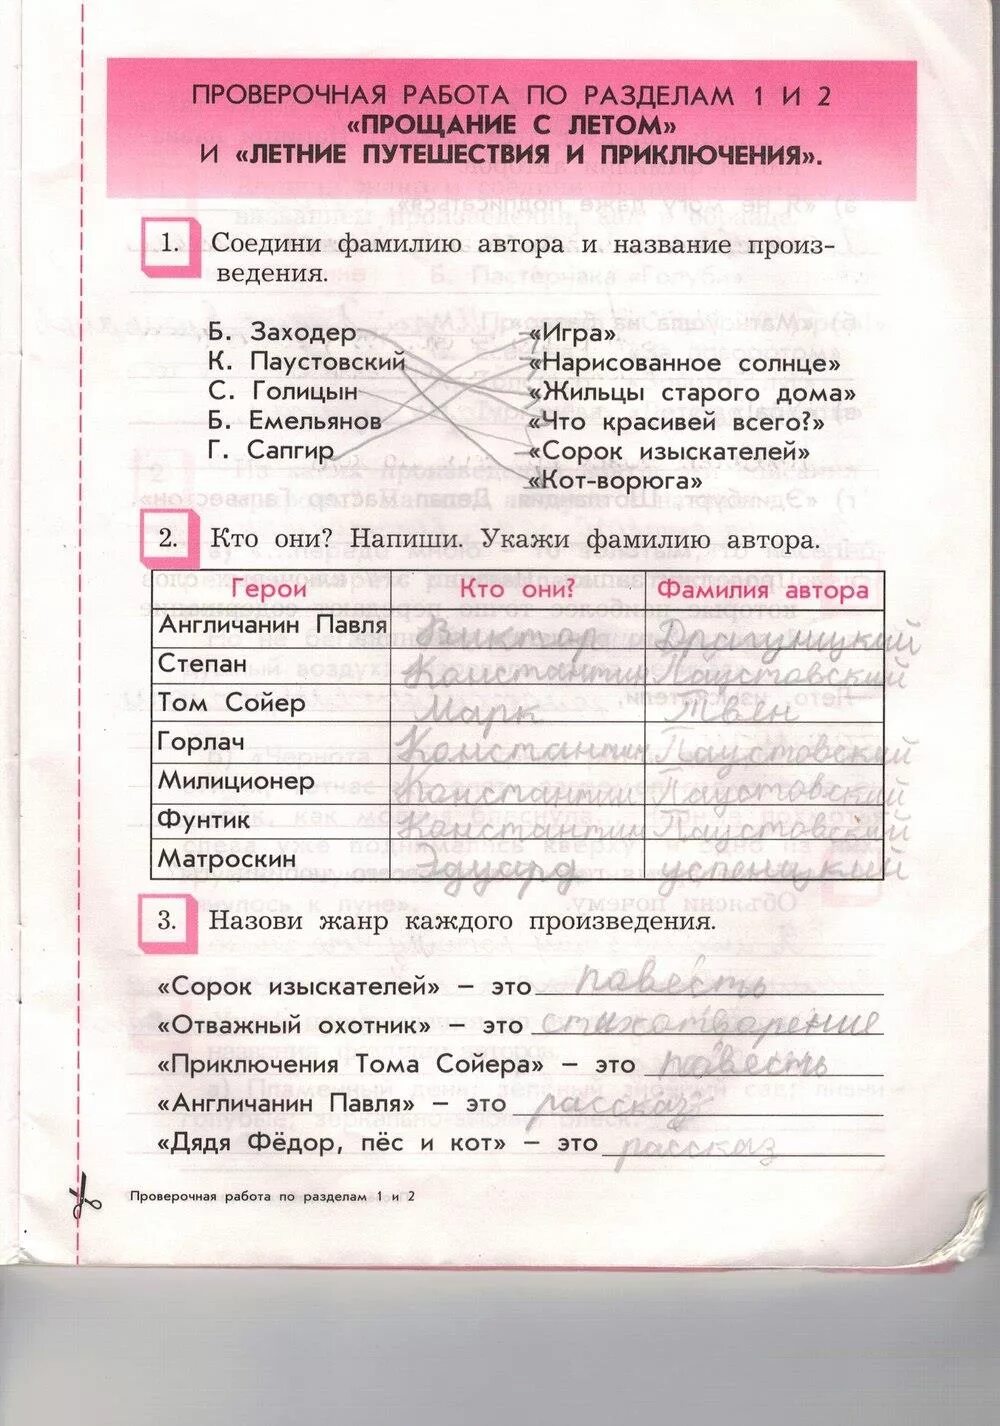 ПРОВЕРОЧНАЯ РАБОТА ПО РАЗДЕЛАМ 1 И 2
«ПРОЩАНИЕ С ЛЕТОМ»
И «ЛЕТНИЕ ПУТЕШЕСТВИЯ И ПРИКЛЮЧЕНИЯ».
1. Соедини фамилию автора и название произ-
ведения.
Б. Заходер «Игра»
К. Паустовский «Нарисованное солнце»
С. Голицын «Жильцы старого дома»
Б. Емельянов «Что красивей всего?»
Г. Сапгир «Сорок изыскателей»
«Кот-ворюга»
2. Кто они? Напиши. Укажи фамилию автора.
Герои Кто они? Фамилия автора
Англичанин Павля Виктор Драгунцкий
Степан Константин Паустовский
Том Сойер Марк Твен
Горлач Константин Паустовский
Милиционер Константин Паустовский
Фунтик Константин Паустовский
Матроскин Эдуард успенцкий
3. Назови жанр каждого произведения.
«Сорок изыскателей» – это повесть
«Отважный охотник» – это стихотварение
«Приключения Тома Сойера» – это повесть
«Англичанин Павля» – это рассказ
«Дядя Фёдор, пёс и кот» – это рассказ
Проверочная работа по разделам 1 и 2